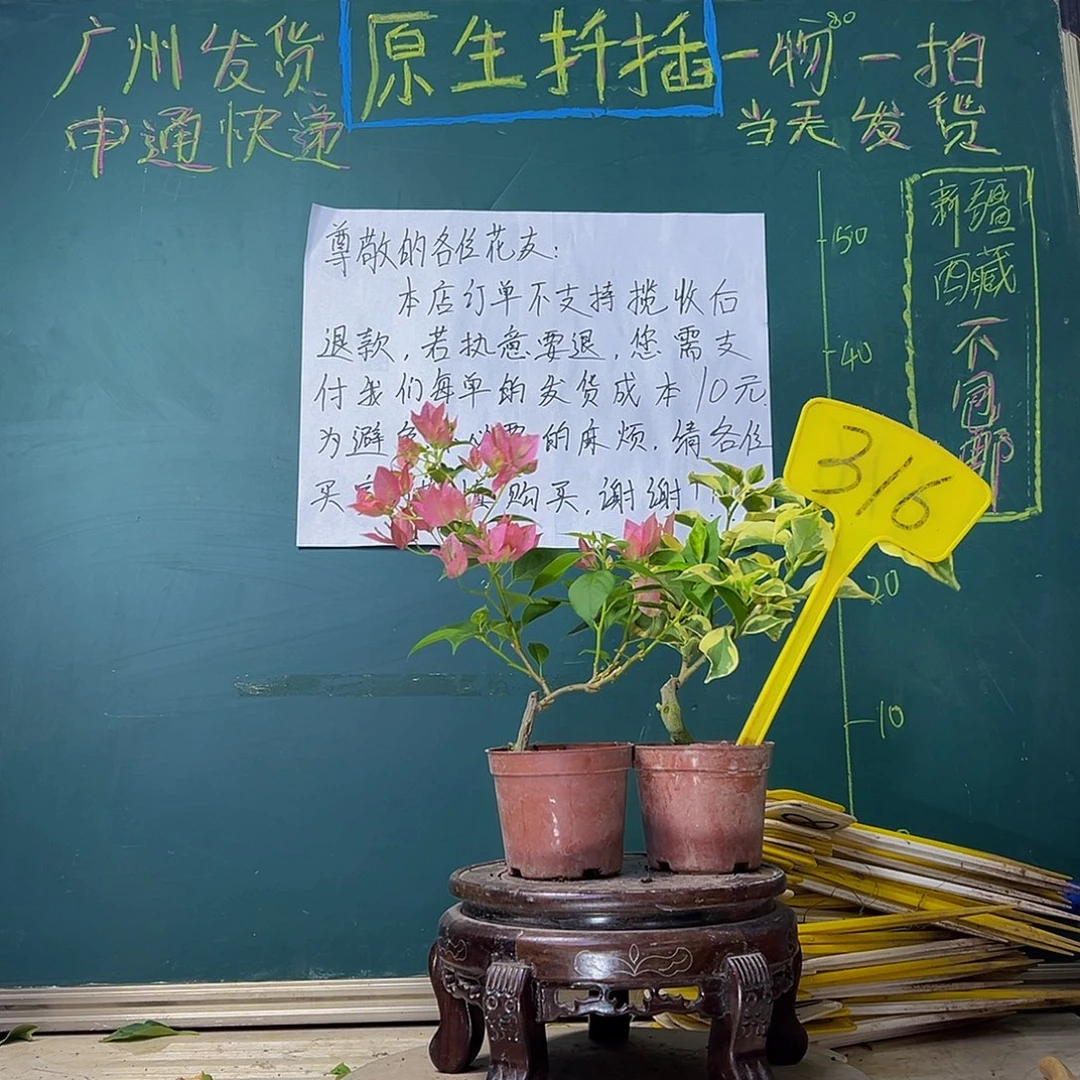 广州发货
申通快递
原生扦插
一物一拍
当天发货
80
50
40
20
10
新疆
西藏
不包邮
尊敬的各位花友:
本店订单不支持揽收后
退款,若执意要退,您需支
付我们每单的发货成本10元.
为避 的麻烦,请各位
买 购买,谢谢
316
8